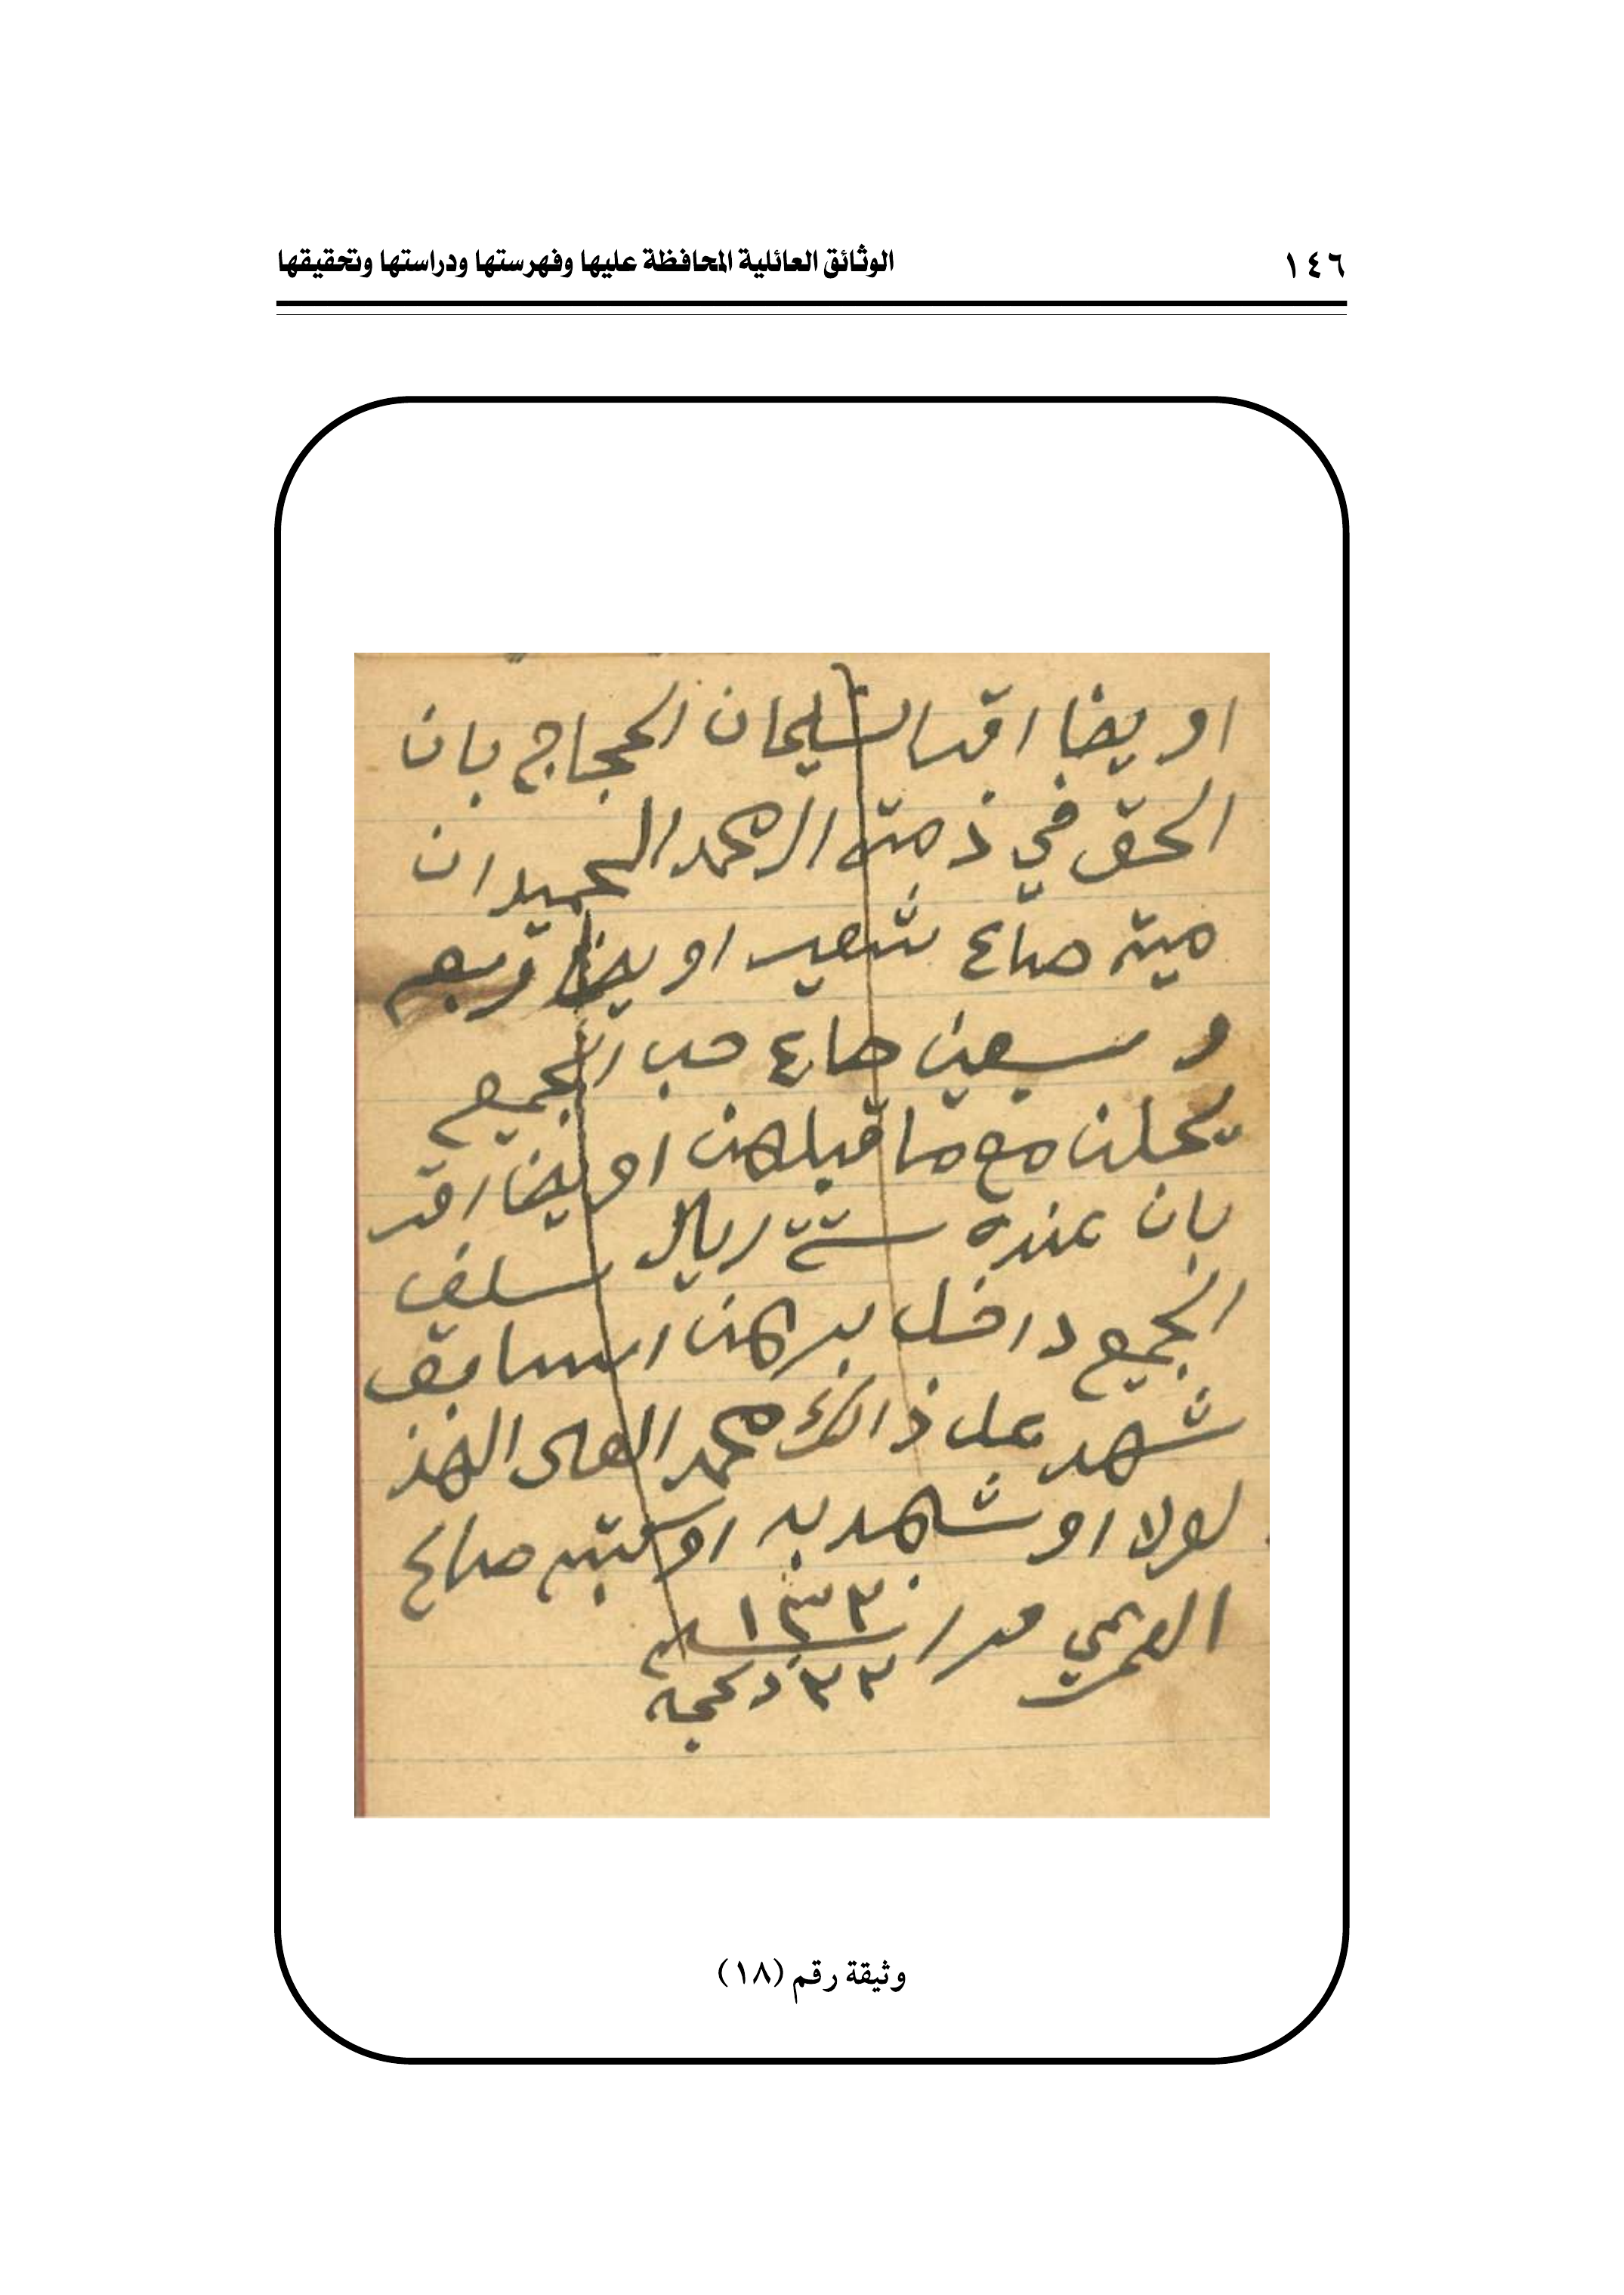 ١٤٦
الوثائق العائلية المحافظة عليها وفهرستها ودراستها وتحقيقها
او يضا اقر السليمان الحجاج بان
الحق في ذمته الى محمد الحميدان
مية صاع شعير او يضا
و سبعين صاع حب الجميع
يحلن مع ما قبلهن او يضا اقر
بان عنده ستة ريال سلف
الجميع داخل برهن السابق
شهد عل ذالك محمد العلى
او شهد به او كتبه صالح
العميمي
١٣٣
٣٣ ذلحجه
وثيقة رقم (١٨)